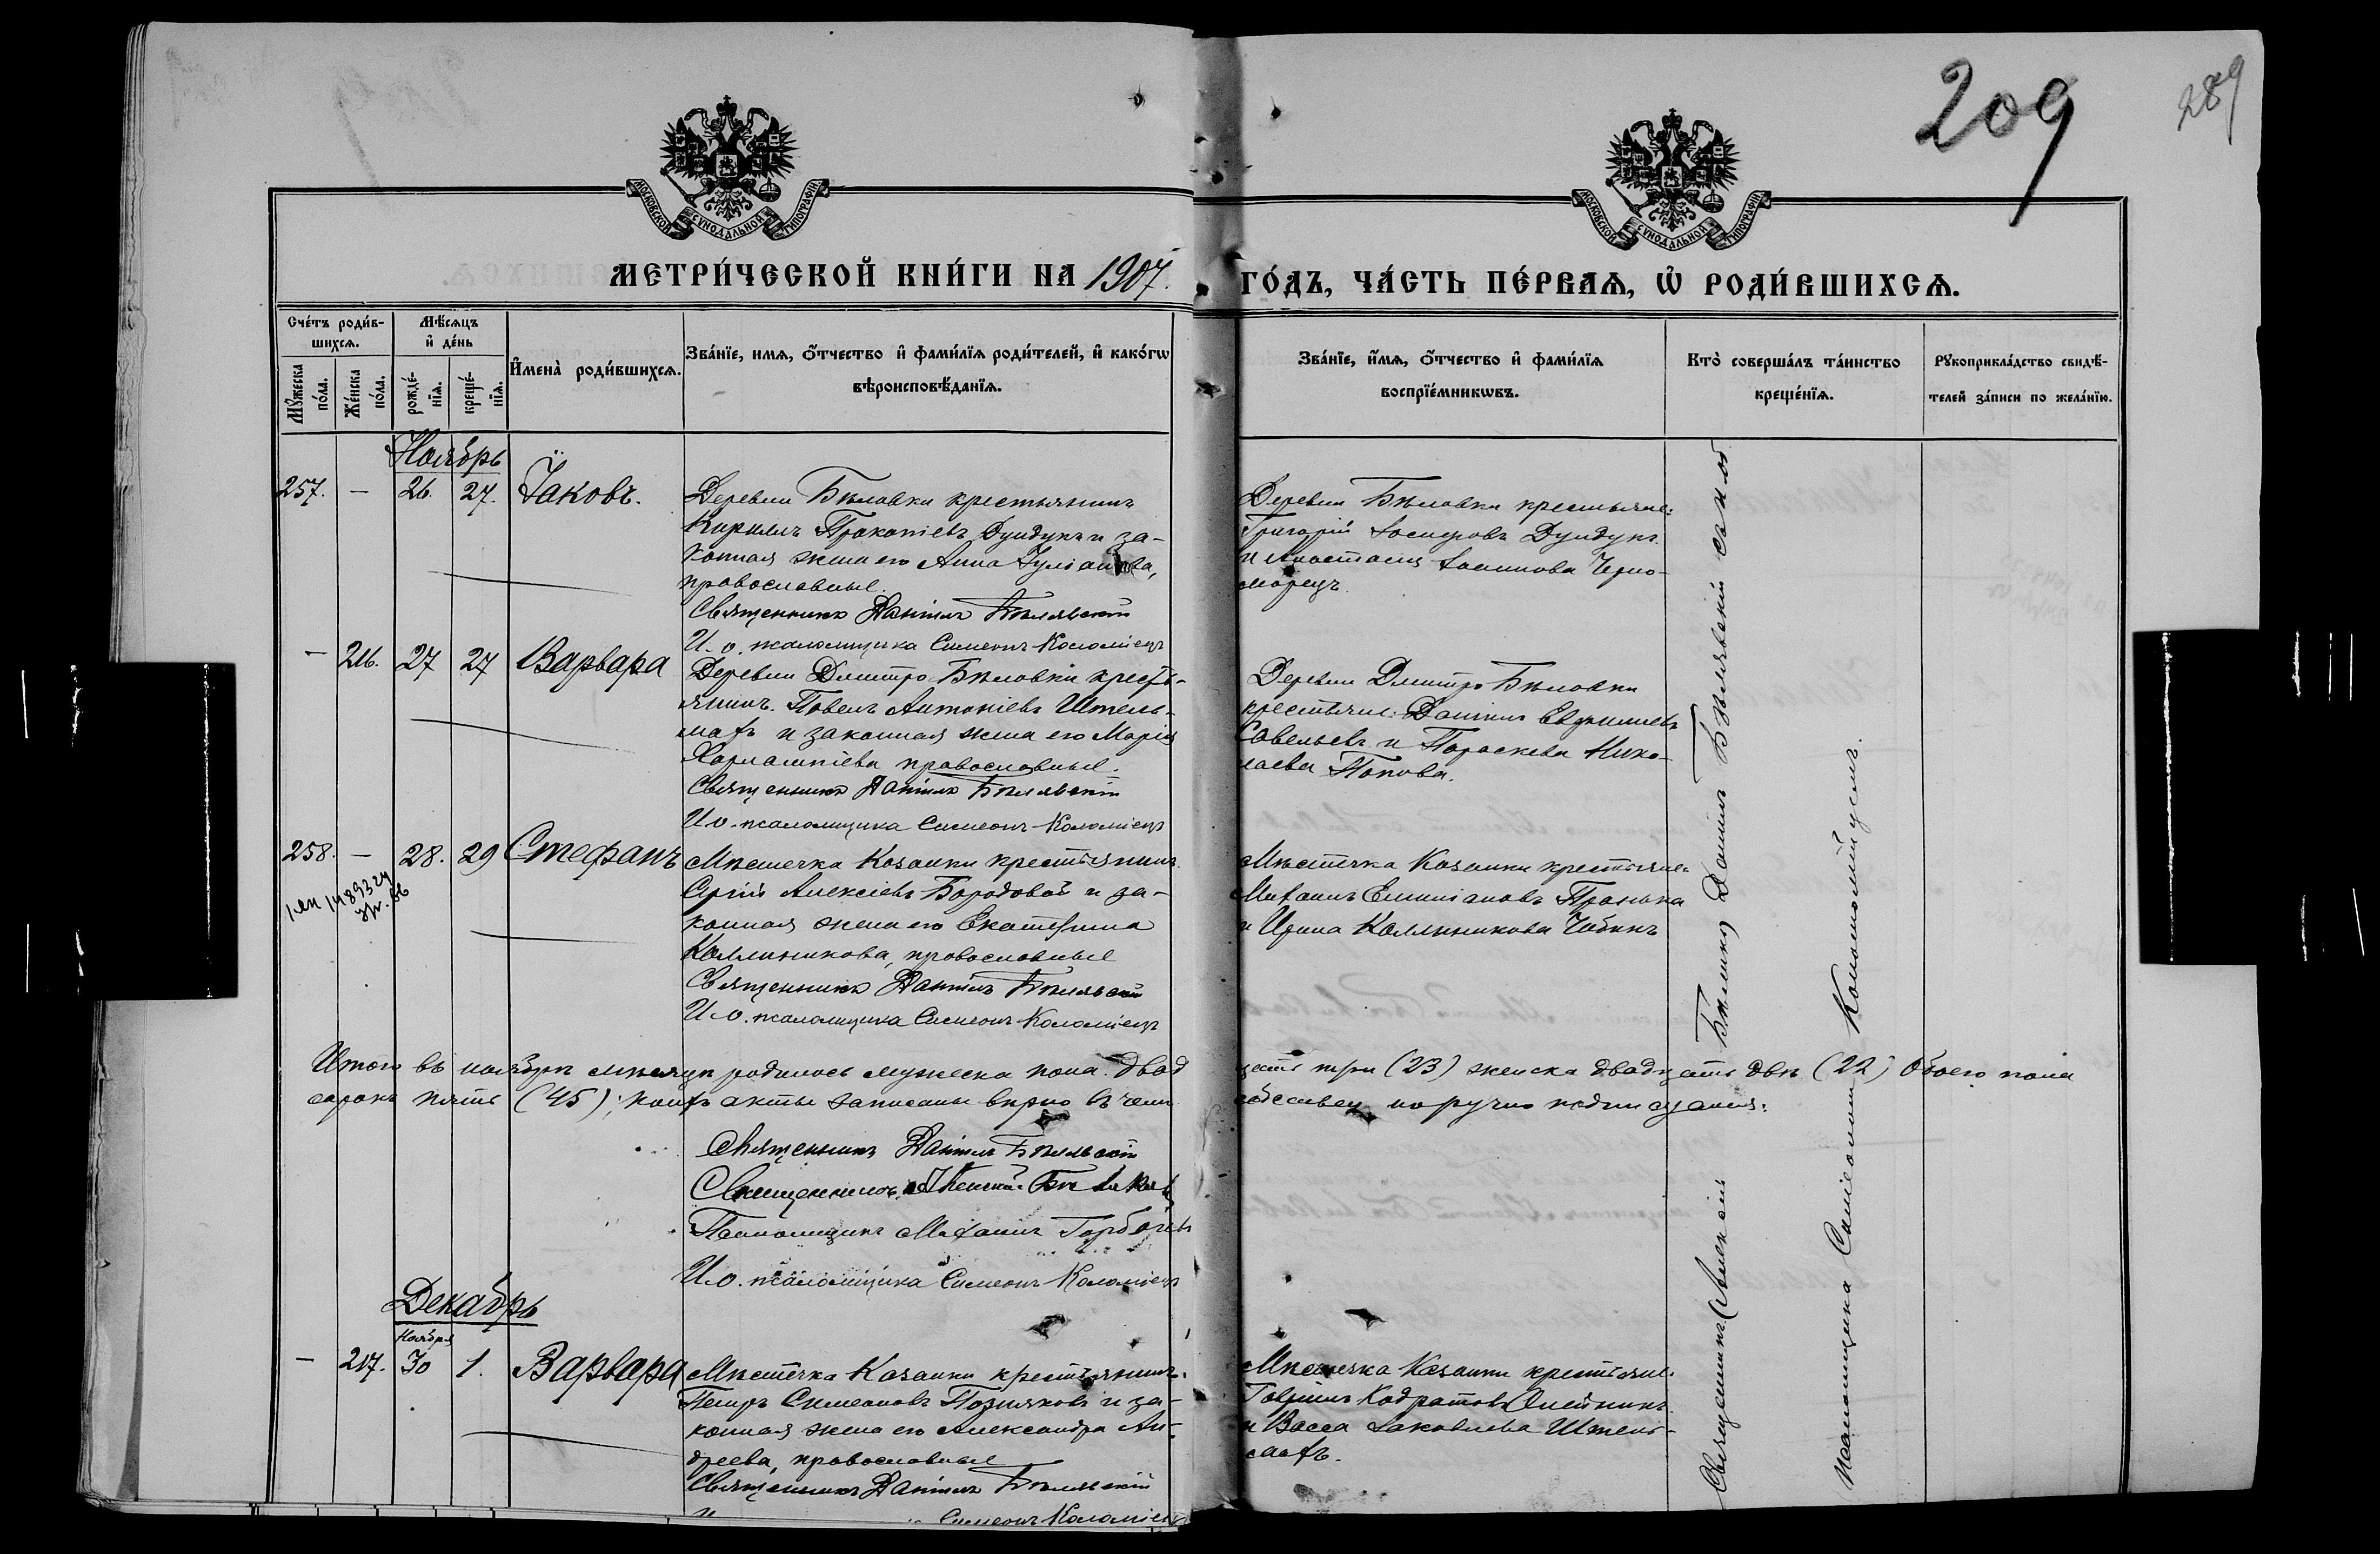 209
289
МОСКОВСКОЙ СУНОДАЛЬНОЙ ТИПОГРАФІИ
МОСКОВСКОЙ СУНОДАЛЬНОЙ ТИПОГРАФІИ
МЕТРИ́ЧЕСКОЙ КНИ́ГИ НА 1907.
ГО́ДЪ, ЧА́СТЬ ПЕ́РВАѦ, Ѡ РОДИ́ВШИХСѦ.
Сче́тъ роди́в-
шихсѧ.
Мꙋ́жеска по́ла.
Же́нска по́ла.
Мѣ́сѧцъ
и де́нь
рожде́-
нїѧ.
креще́-
нїѧ.
Имена̀ роди́вшихсѧ.
Зва́нїе, имѧ, о́тчество и фами́лїѧ роди́телей, и како́гѡ
вѣроисповѣ́данїѧ.
Зва́нїе, и́мѧ, о́тчество и фами́лїѧ
воспрїе́мникѡвъ.
Кто̀ соверша́лъ та́инство
креще́нїѧ.
Рꙋкоприкла́дство свидѣ́-
телей за́писи по жела́нїю.
Ноябрь
257. — 26. 27. Іаковъ.
Деревни Бѣловки крестьянинъ
Кириллъ Прокопіевъ Дундукъ и за-
конная жена его Анна Іуліанова,
православные.
Священникъ Даніилъ Бѣлявскій
И. о. псаломщика Симеонъ Коломіецъ
Деревни Бѣловки крестьяне:
Григорій Іосифовъ Дундукъ
и Анастасія Іоаннова Черно-
морецъ.
— 216. 27 27 Варвара
Деревни Дмитро-Бѣловки кресть-
янинъ Павелъ Антоніевъ Штель-
махъ и законная жена его Марія
Харлампіева православные.
Священникъ Даніилъ Бѣлявскій
И. о. псаломщика Симеонъ Коломіецъ
Деревни Дмитро Бѣловки
крестьяне: Даніилъ Евфиміевъ
Савельевъ и Параскева Нико-
лаева Попова.
258. — 28. 29 Стефанъ
Мѣстечка Казанки крестьянинъ
Сергій Алексіевъ Бородовой и за-
конная жена его Екатерина
Каллиникова, православные
Священникъ Даніилъ Бѣлявскій
И. о. псаломщика Симеонъ Коломіецъ
Мѣстечка Казанки крестьяне:
Михаилъ Емиліановъ
и Ирина Каллиникова
Итого въ ноябрѣ мѣсяцѣ родилось мужеска пола двад
цать три (23) женска двадцать двѣ (22) Обоего пола
сорокъ пять (45); коихъ акты записаны вѣрно въ чемъ
собственноручно подписуемся:
Священникъ Даніилъ Бѣлявскій
Священникъ
Псаломщикъ Михаилъ
И. о. псаломщика Симеонъ Коломіецъ
Декабрь
Ноября
— 217. 30 1. Варвара
Мѣстечка Казанки крестьянинъ
Петръ Симеоновъ Позняковъ и за-
конная жена его Александра Ан-
дреева, православные
Священникъ Даніилъ Бѣлявскій
Симеонъ Коломіецъ
Мѣстечка Казанки крестьяне:
Гавріилъ Кодратовъ Олейникъ
и Васса Іаковлева Штель-
махъ.
Священникъ Алексій
Даніилъ Бѣлявскій
псаломщика Симеономъ Коломійцемъ.